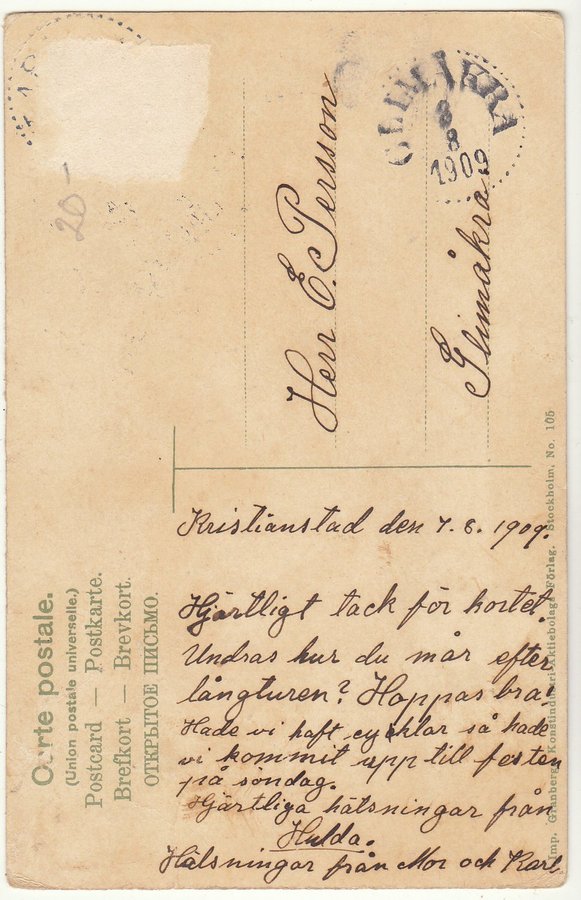 GLIMÅKRA
8
8
1909
20-
Herr E. Persson
Glimåkra.
Carte postale.
(Union postale universelle.)
Postcard — Postkarte.
Brefkort — Brevkort.
ОТКРЫТОЕ ПИСЬМО.
Kristianstad den 7.8.1909.
Hjärtligt tack för kortet.
Undras hur du mår efter
långturen? Hoppas bra!
Hade vi haft cycklar så hade
vi kommit upp till festen
på söndag.
Hjärtliga hälsningar från
Hulda.
Hälsningar från Mor och Karl.
Imp. Granbergs Konstindustri-Aktiebolags Förlag. Stockholm, No. 105